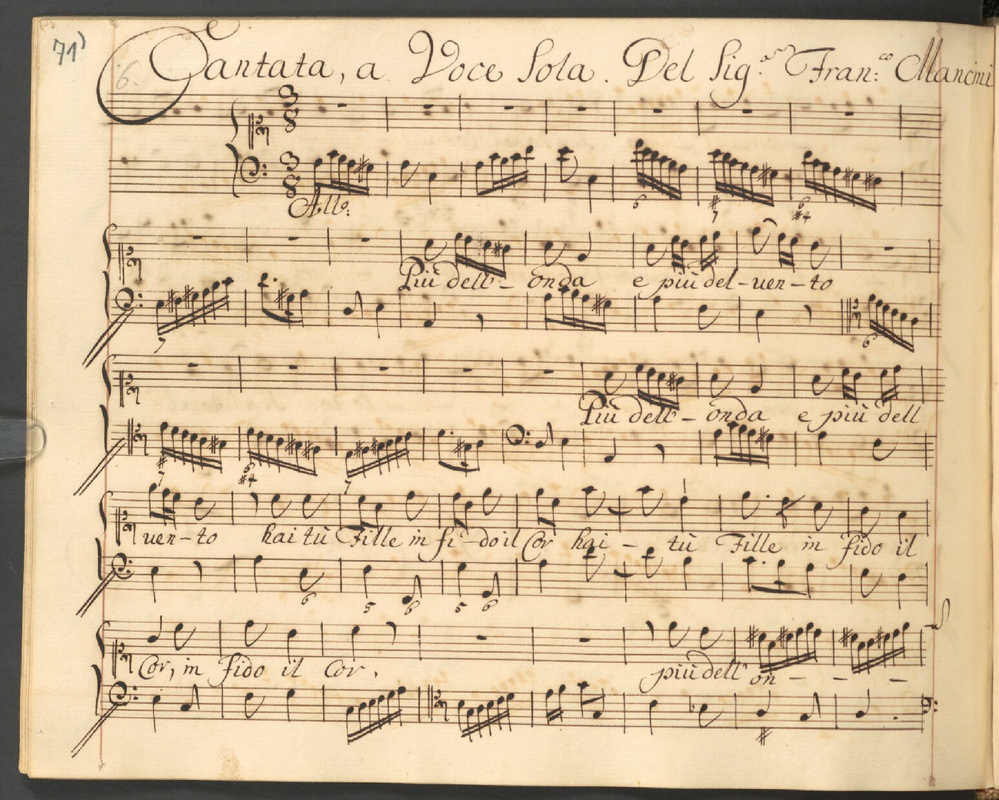 71)
6. Cantata, a Voce Sola. Del Sig.r Fran:co Mancini
3 8
3 8
6 #7 6 #4
All.o:
Più dell- onda e più del-uen-to
7 6
Più dell- onda e più dell
#7 6 #4 7
uen-to hai tù Fille in fi-do il Cor hai - tù Fille in fido il
6 5 6 5 6
Cor, in fido il cor, più dell' on- - - -
#